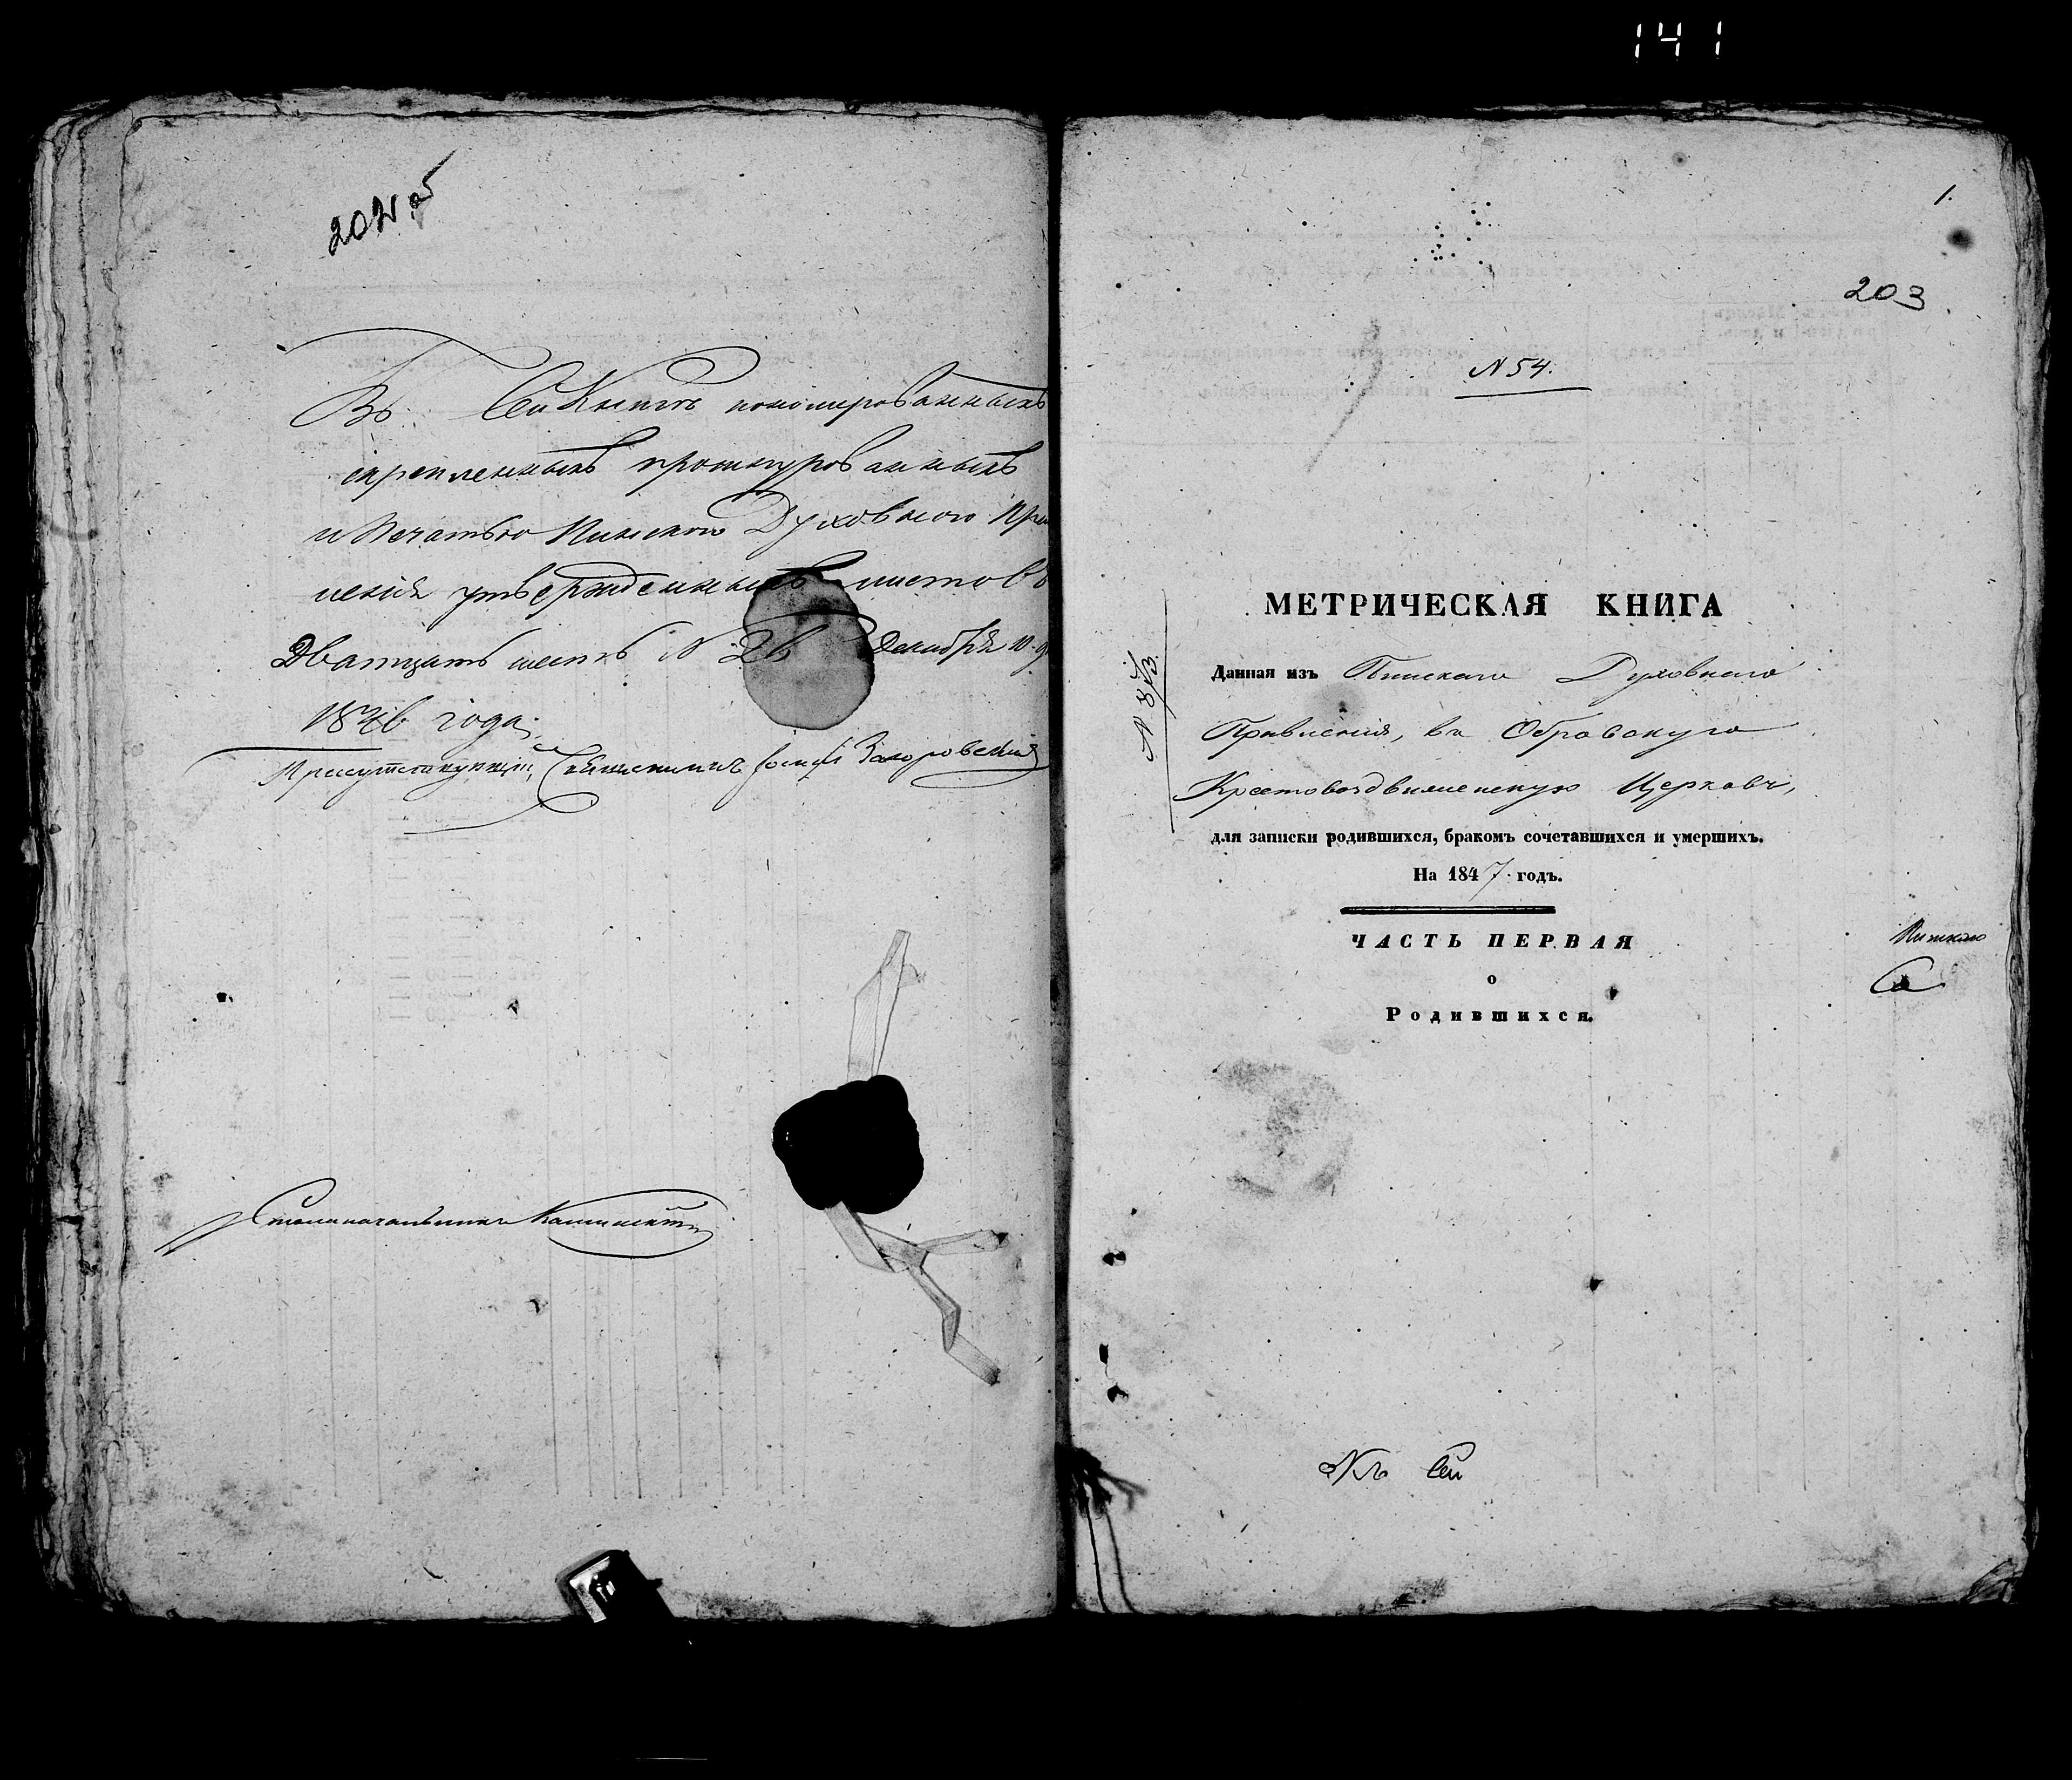 141
202 об
Въ сей Книгѣ пономированныхъ
скрепленныхъ прошнурованныхъ
и Печатью Пинского Духовного Пра
ленія утвержденныхъ листовъ
Дватцать шесть N 26 Декабря 10
1846 года.
Присутствующій Священникъ
Столоначальникъ
1.
203
N 54.
МЕТРИЧЕСКАЯ КНИГА
Данная изъ Пинскаго Духовнаго
Правленія, въ Обровскую
Крестовоздвиженскую Церковь,
для записки родившихся, бракомъ сочетавшихся и умершихъ.
На 1847 годъ.
ЧАСТЬ ПЕРВАЯ
о
Родившихся.
N 873.
Пинского
Къ сей